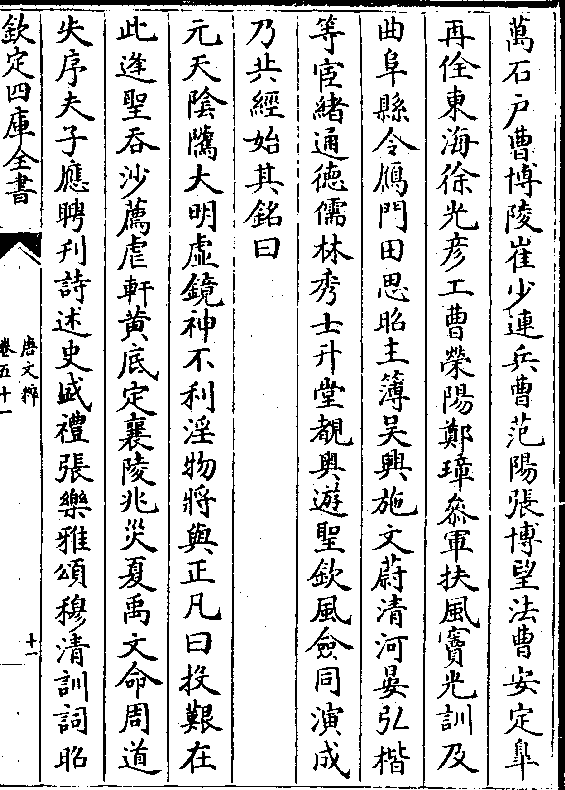 萬石戶曹博陵崔少連兵曹范陽張博望法曹安定皐
再佺東海徐光彦工曹滎陽鄭璋叅軍扶風竇光訓及
曲阜縣令鴈門田思昭主簿吳興施文蔚清河晏弘楷
等宦緒通德儒林秀士升堂覩奥遊聖欽風僉同演成
乃共經始其銘曰
元天陰騭大明虚鏡神不利淫物將與正凡曰投艱在
此逢聖吞沙薦虐軒黃底定襄陵兆災夏禹文命周道
失序夫子應聘刋詩述史盛禮張樂雅頌穆清訓詞昭
欽定四庫全書
唐文粹
卷五十一
十一